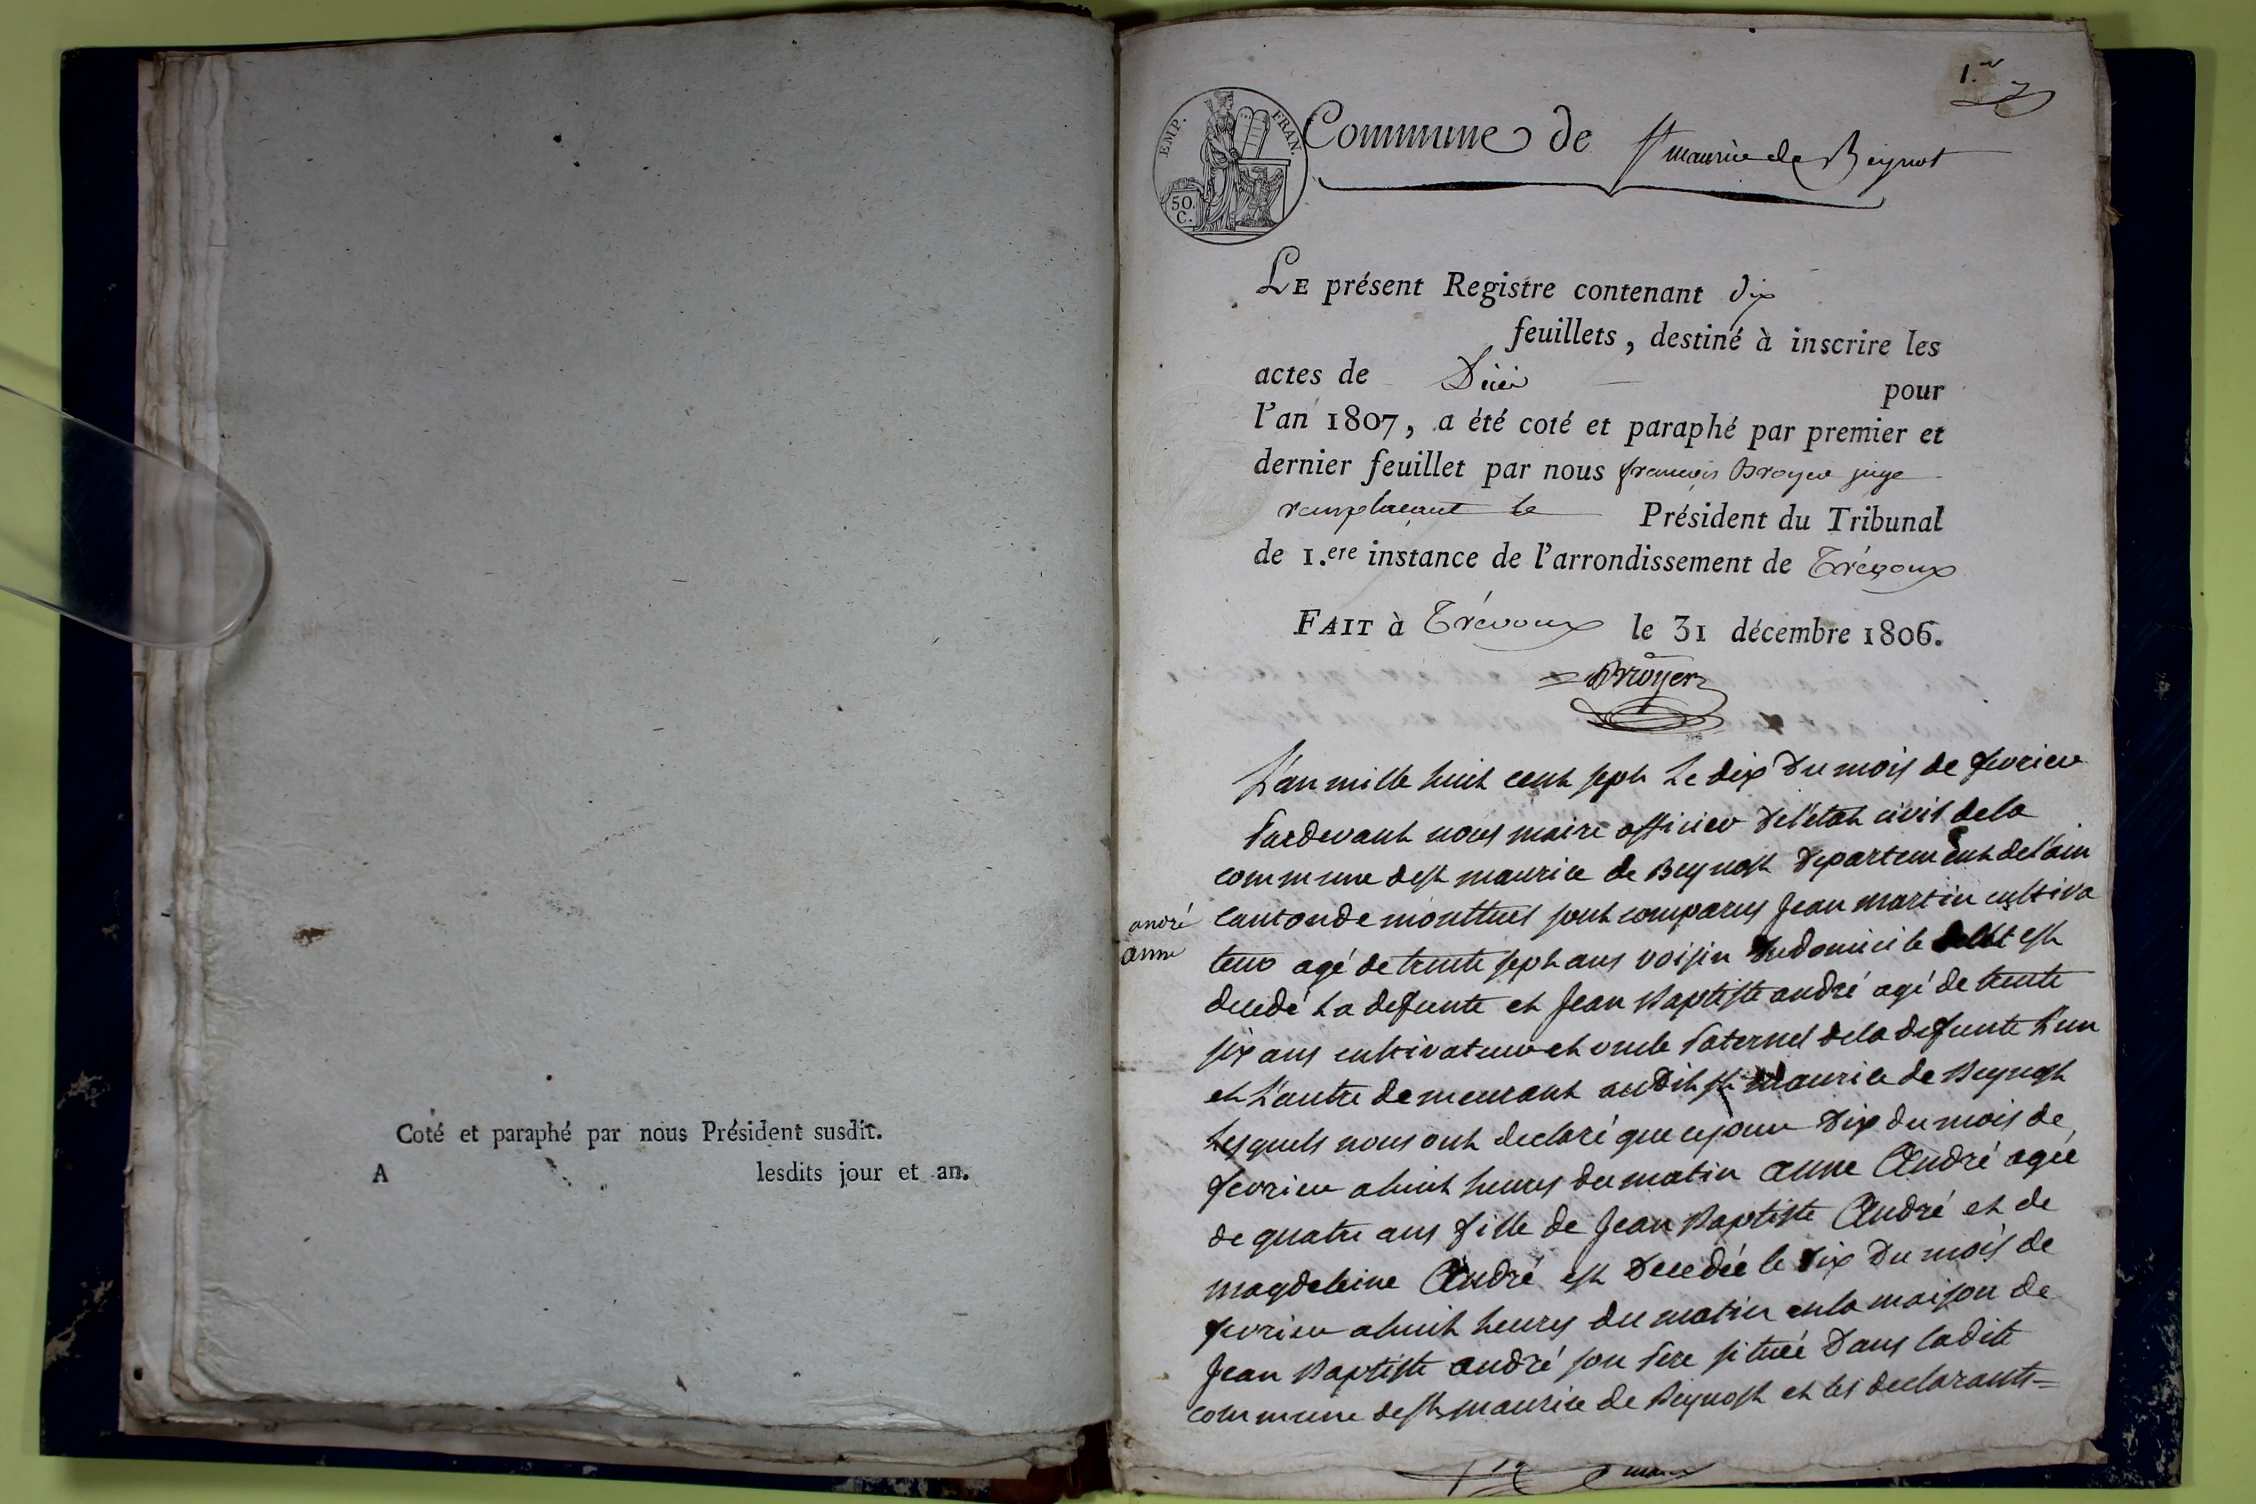 Coté et paraphé par nous Président susdit.
A lesdits jour et an.
1.er
EMP. FRAN.
50. C.
Commune de St maurice de Beynost
LE présent Registre contenant dix
feuillets, destiné à inscrire les
actes de Décès pour
l'an 1807, a été coté et paraphé par premier et
dernier feuillet par nous françois Broyer juge
remplaçant le Président du Tribunal
de 1.ere instance de l'arrondissement de Trévoux
FAIT à Trévoux le 31 décembre 1806.
Broyer
andré
anne
L'an mille huit cent sept Le dix Du mois de fevrier
Pardevant nous maire officier De l'état civil de la
commune de st maurice de Beynost Departement de l'ain
canton de montluel sont comparus Jean martin cultiva
teur agé de trente sept ans voisin du domicile est
decedé La defunte et Jean Baptiste andré agé de trente
six ans cultivateur et oncle Paternel de la defunte L'un
et L'autre demeurant audit st maurice de Beynost
Lesquels nous ont declaré que ce jour Dix du mois de
fevrier a huit heures du matin anne André agée
de quatre ans fille de Jean Baptiste André et de
magdeleine André est Decedée le dix Du mois de
fevrier a huit heures du matin en la maison de
Jean Baptiste andré son Pere située Dans ladite
commune de st maurice de Beynost et les declarants=